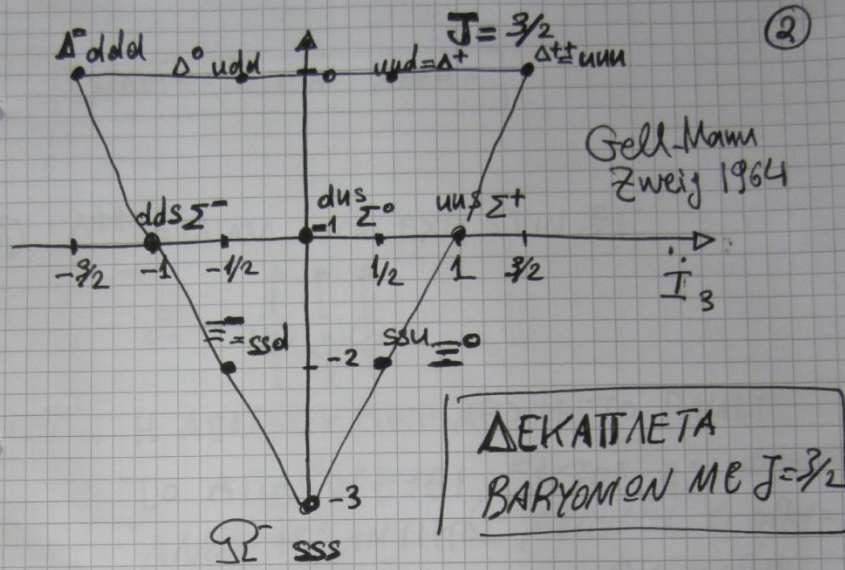 J = 3/2
②
Δ⁻ ddd
Δ⁰ udd
0
uud=Δ⁺
Δ⁺⁺=uuu
Gell-Mann
Zweig 1964
ddsΣ⁻
dus
-1 Σ⁰
uus Σ⁺
-3/2
-1
-1/2
1/2
1
3/2
Ï₃
Ξ⁻=ssd
-2
ssu Ξ⁰
-3
Ω⁻ sss
ΔΕΚΑΠΛΕΤΑ
BARYOMΩN ΜΕ J=3/2